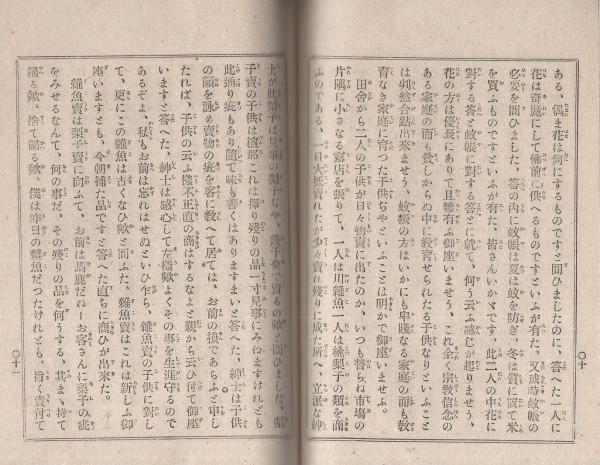 ある、偶ま花は何にするものですと問ひましたのに、答へた一人に
花は奇麗にして佛前に供へるものですといふが有た、又或時蚊帳の
必要を問ひました、答の內に蚊帳は夏は蚊を防ぎ、冬は質に置て米
を買ふものですといふが有た、皆さんいかゞです、此二人の中花に
對する答と蚊帳に對する答とに就て、何う云ふ感じが起りませう、
花の方は優長にありて且雅有ふ御座いませう、これ全く宗敎信念の
ある家庭の而も貧しからぬ中に敎育せられたる子供なりといふこと
は判然合點出來ませう、蚊帳の方はいかにも卑賤なる家庭の而も敎
育なき家庭に育つた子供ぢやといふことは明かで御座いませふ。
田舍から二人の子供が日々物賣に出たのか、いつも替らに市塲の
片隅に小さなる露店を張りて、一人は川雜魚一人は桃梨子の類を商
ふのである、一日大抵賣れたが少々賣れ殘りに成た所へ、立派な紳
士が此梨子は見事の梨子ぢや、幾子金で賣るの歟と問ひました、梨
子賣の子供は檀那これは擇り殘りの品一寸見事にみゆますけれども
此通り疵もあり隨て味も善くはありますまいと答へた、紳士は子供
の顏を詠め賣物の疵を客に敎へて居ては、お前の損であらふと申し
たれば、子供の云ふ樣不正直の商はするなよと親から云ひ付て御座
いますと答へた、紳士は感心して左樣歟よくその事を生涯守るので
あるぞよ、私もお前は忘れはせぬといひ乍ら、雜魚賣の子供に對し
て、更にこの雜魚は古くなひ歟と問ふた、雜魚賣はこれは新しふ御
座いますとも、今朝捕た品ですと答へた直ちに商ひが出來た。
雜魚賣は梨子賣に向ふて、お前は馬鹿だねーお客さんに梨子の疵
をみせるなんて、何の事だ、その殘りの品を何うする、其まゝ持て
歸る歟、捨て歸る歟、僕は昨日の雜魚だつたけれとも、旨く賣付て
〇十
〇十一